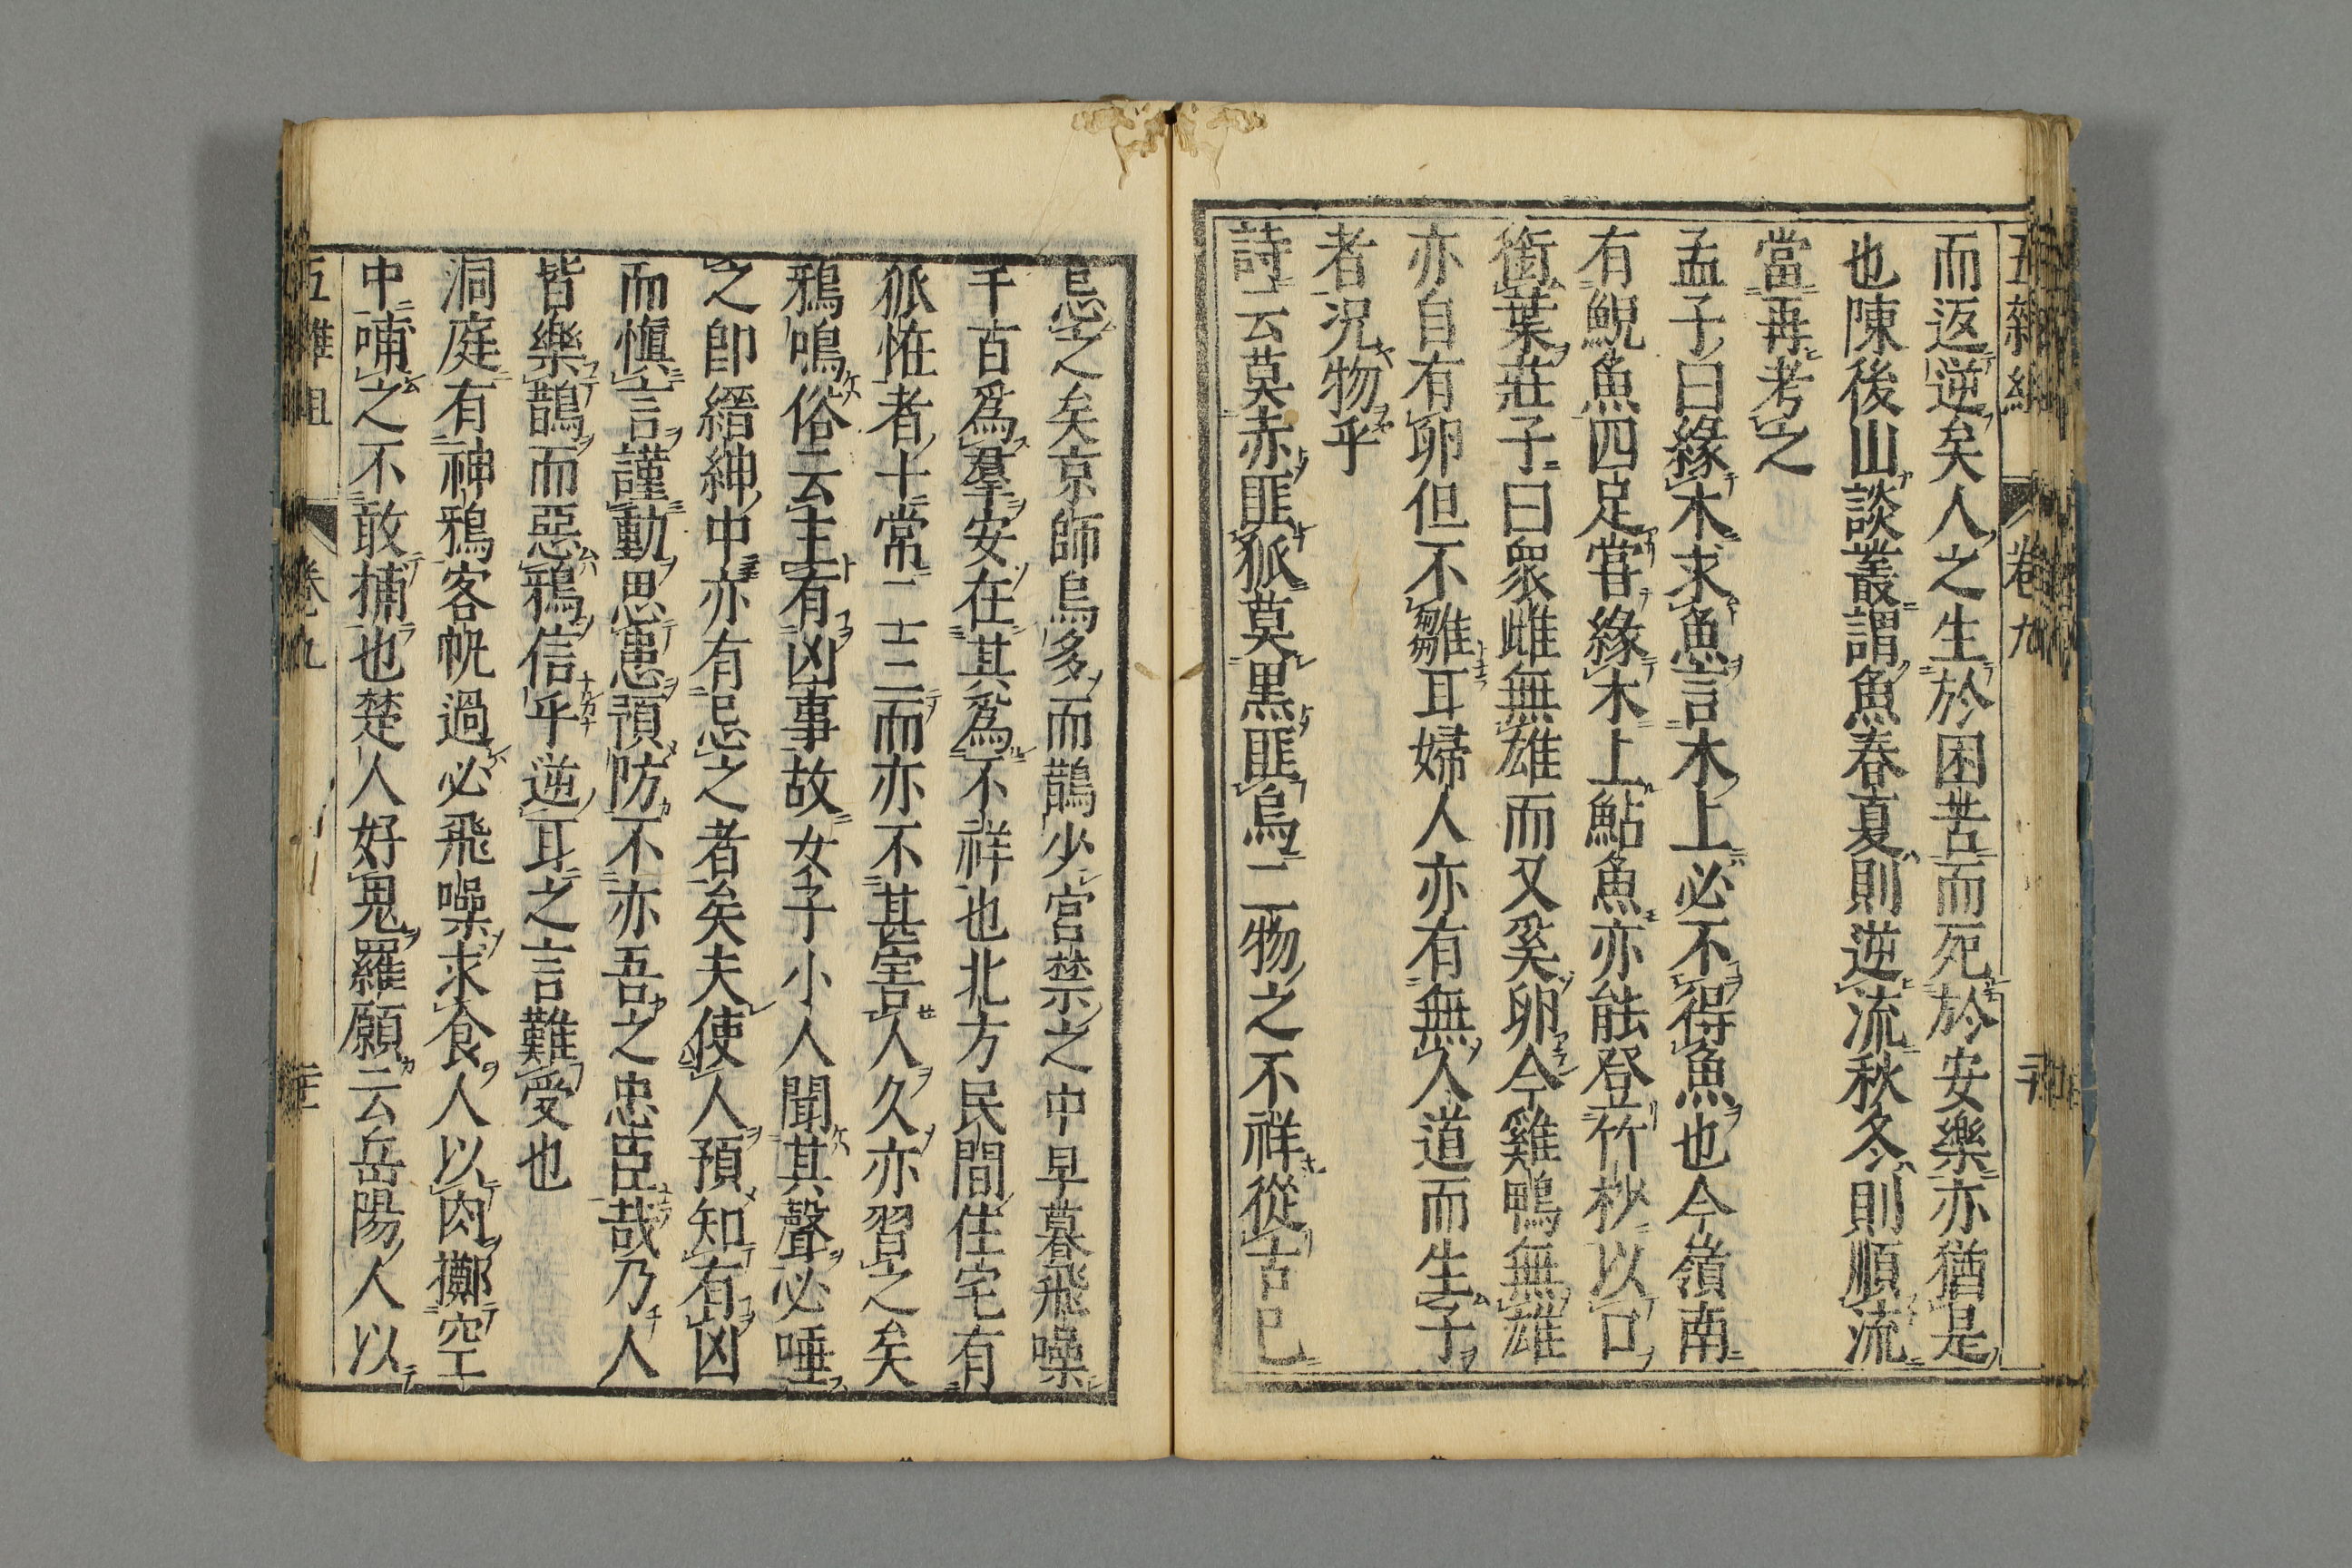 五雜組 卷九
而返逆矣人之生於困苦而死於安樂亦猶是
也陳後山談叢謂魚春夏則逆流秋冬則順流
當再考之
孟子曰緣木求魚言木上必不得魚也今嶺南
有鯢魚四足嘗緣木上鮎魚亦能登竹杪以口
銜葉莊子曰衆雌無雄而又奚卵今雞鴨無雄
亦自有卵但不雛耳婦人亦有無人道而生子
者況物乎
詩云莫赤匪狐莫黑匪烏二物之不祥從古已
忌之矣京師烏多而鵲少宮禁之中早暮飛噪
千百爲羣安在其爲不祥也北方民間住宅有
狐恠者十常二三而亦不甚害人久亦習之矣
鴉鳴俗云主有凶事故女子小人聞其聲必唾
之卽縉紳中亦有忌之者矣夫使人預知有凶
而愼言謹動思患預防不亦吾之忠臣哉乃人
皆樂鵲而惡鴉信乎逆耳之言難受也
洞庭有神鴉客帆過必飛噪求食人以肉擲空
中哺之不敢捕也楚人好鬼羅願云岳陽人以
五雜組 卷九